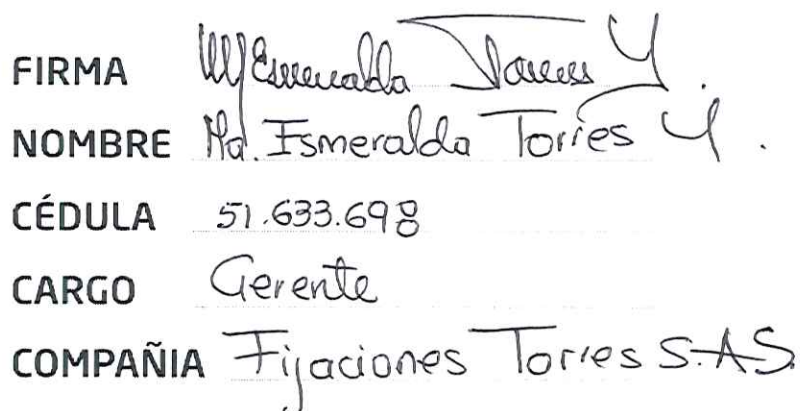 FIRMA MEsmeralda Torres Y.
NOMBRE Ma. Esmeralda Torres Y.
CÉDULA 51.633.698
CARGO Gerente
COMPAÑIA Fijaciones Torres S.A.S.